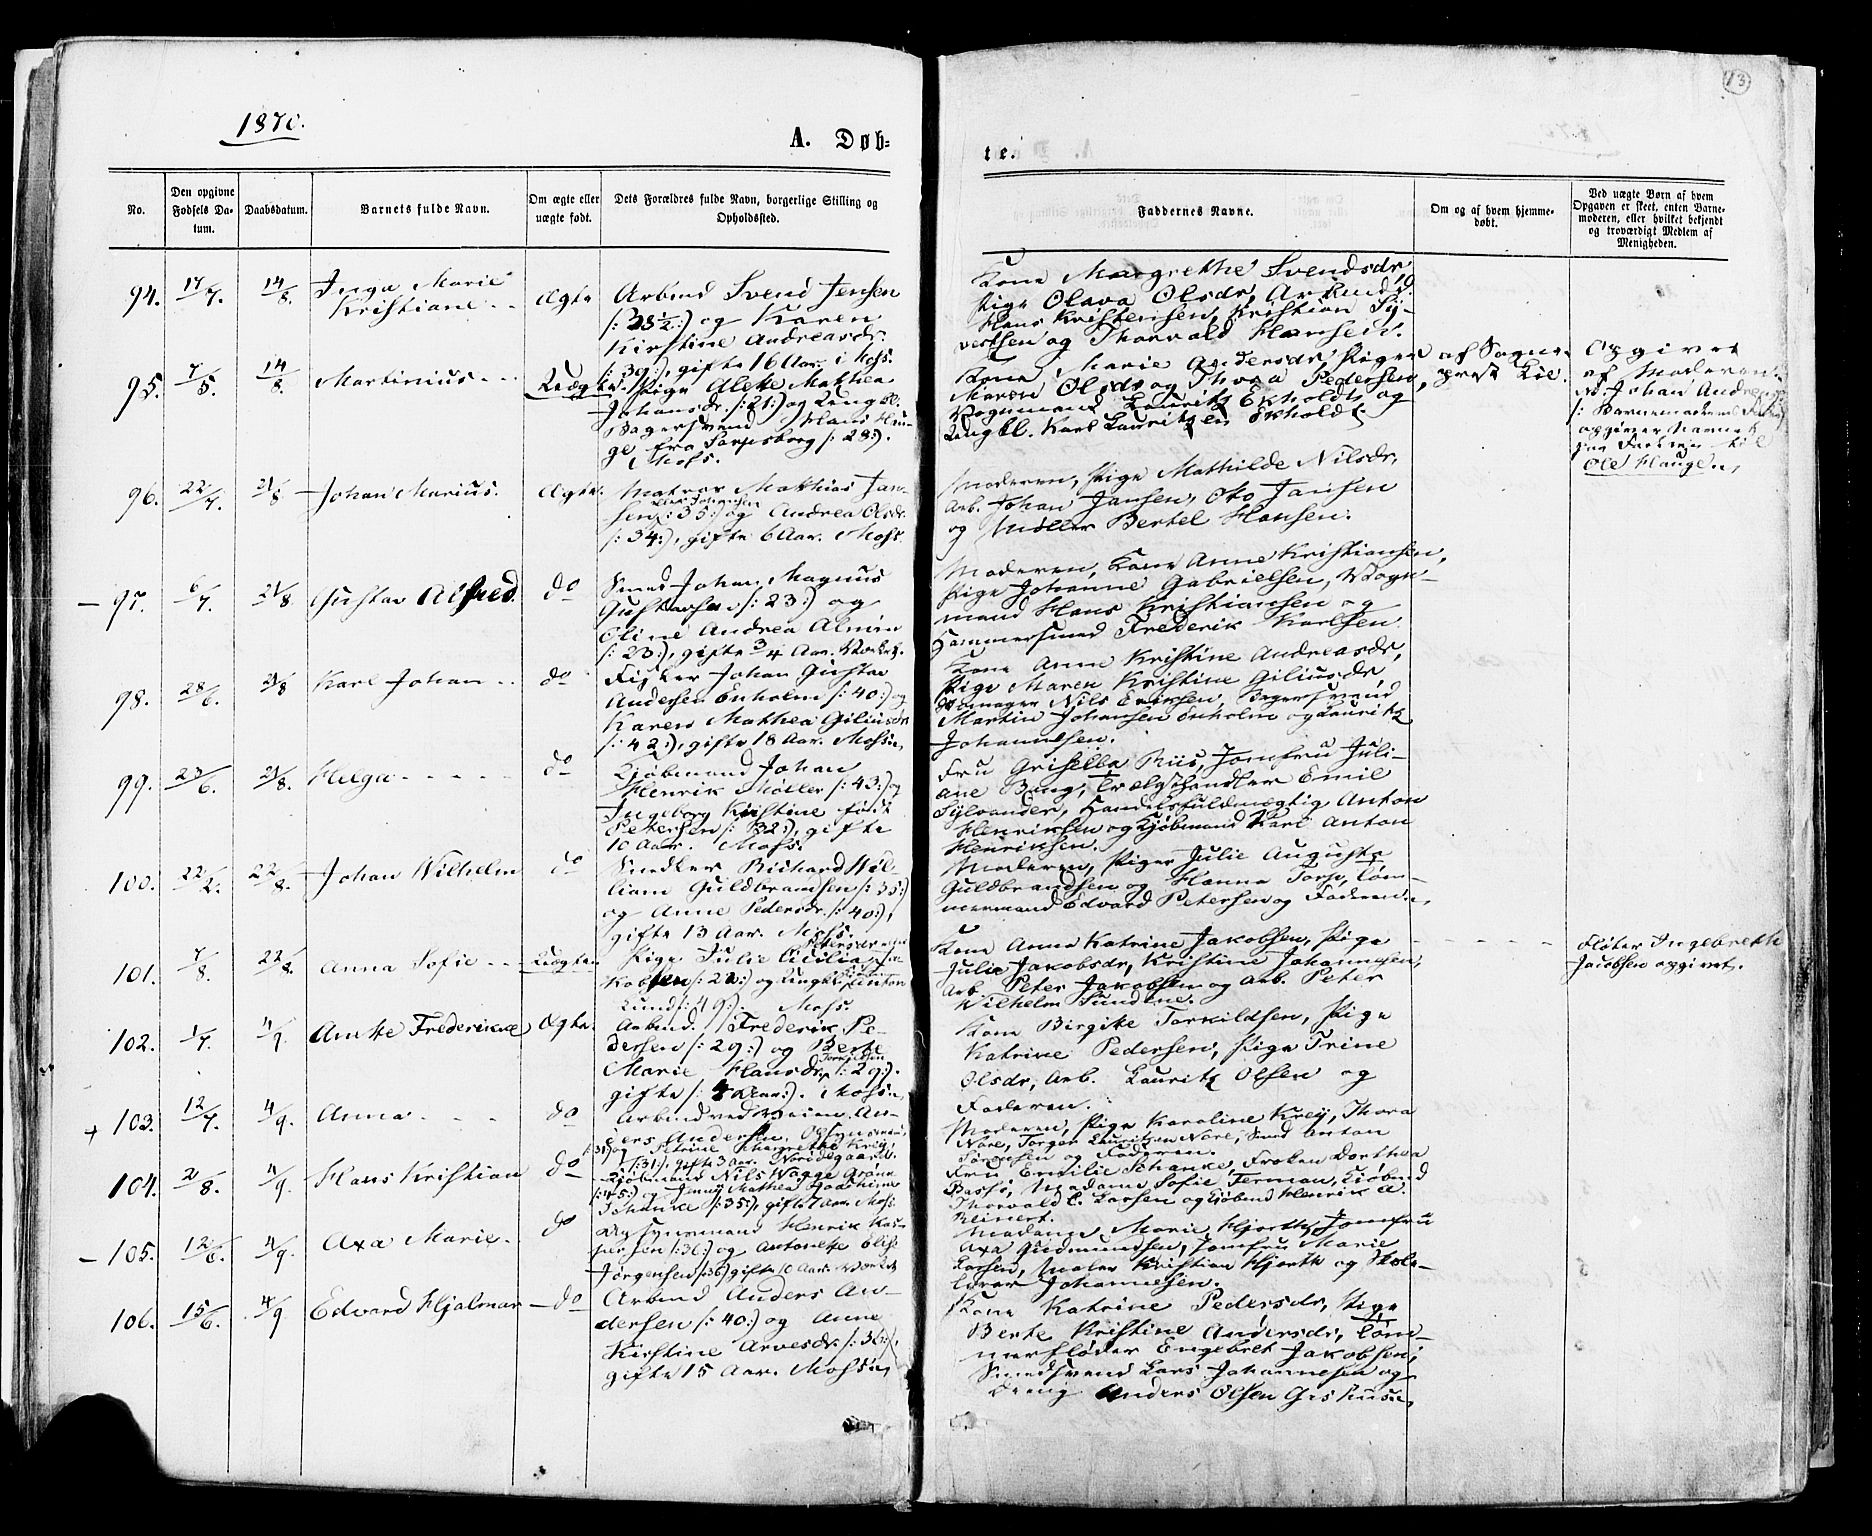 13
1870.
A. Døb=
te.
No.
Den opgivne Fødsels Da-tum.
Daabsdatum.
Barnets fulde Navn.
Om ægte eller uægte født.
Dets Forældres fulde Navn, borgerlige Stilling og Opholdssted.
Faddernes Navne.
Om og af hvem hjemme-døbt.
Ved uægte Børn af hvem Opgaven er skeet, enten Barne-moderen, eller hvilket bekjendt og troværdigt Medlem af Menigheden.
94. 17/7. 14/8. Inga Marie
Kristiane
Ægte
Arbmd Svend Jensen
/: 38½ :/ og Karen
Kirstine Andreasdr.
/: 39 :/, gifte 16 Aar. i Moss.
Kone Margrethe Svendsdr,
Pige Olava Olsdr, Arbmd
Hans Kristensen, Kristian Sy-
vertsen og Thorvald Hansen.
95. 7/5. 14/8. Martinius
Uægte.
Pige Alette Mathea
Johansdr. /: 21 :/ og Ungkl.
Bagersvend Hans Hau-
ge fra Sarpsborg /: 28 :/.
Moss.
Kone Marie Andersdr, Piger
Maren Olsdr og Thora Pedersen,
Vognmand Lauritz Ekholdt og
Ungkl. Karl Lauritzen Ekholdt.
af Sogne-
prest Lie.
Opgivet
af Moderen.
Johan Andre
/: Barnemoderens
opgiver Navnet
paa Faderen til
Ole Hauge.
96. 22/7. 21/8 Johan Marius.
Ægte.
Matros Mathias Jan-
sen /: 35 :/ og Andrea Olsdr.
/: 34 :/, gifte 6 Aar. Moss.
Moderen, Pige Mathilde Nilsdr,
Arb. Johan Jansen, Otto Jansen
og Møller Bertel Hansen.
97. 6/7. 21/8. Gustav Alfred.
do
Smed Johan Magnus
Gustavsen /: 23 :/ og
Oline Andrea Almin
/: 23 :/, gifte 3/4 Aar.
Moderen, Kone Anne Kristiansen,
Pige Johanne Gabrielsen, Vogn-
mand Hans Kristiansen og
Hammersmed Frederik Karlsen
98. 28/6. 21/8 Karl Johan
do
Fisker Johan Gustav
Andersen Enholm /: 40 :/ og
Karen Mathea Giliusdr
/: 42 :/, gifte 18 Aar. Moss.
Kone Anne Kristine Andreasdr,
Pige Maren Kristine Giliusdr,
Skomager Nils Eriksen, Bagersvend
Martin Johansen Enholm og Lauritz
Johannesen.
99. 23/6. 21/8. Helga
do
Kjøbmand Johan
Henrik Møller /: 43 :/ og
Ingeborg Kristine født
Petersen /: 32 :/, gifte
10 Aar. Moss.
Fru Grisella Riis, Jomfru Juli-
ane Bing, Trælasthandler Emil
Sylvander, Handelsfuldmægtig Anton
Henriksen og Kjøbmand Karl Anton
Henriksen.
100. 22/2. 22/8. Johan Wilhelm
do
Snedker Richard Wil-
liam Guldbrandsen /: 35 :/
og Anne Pedersdr. /: 40 :/,
gifte 13 Aar. Moss.
Moderen, Piger Julie Augusta
Guldbrandsen og Hanna Torp, Tøm-
mermand Edvard Petersen og Faderen.
101. 7/8. 22/8. Anna Sofie
Uægte.
Pige Julie Cecilia Ja-
kobsen /: 22 :/ og Ungkl. Anton
Lund /: 49 :/. Moss.
Kone Anne Katrine Jakobsen, Pige
Julie Jakobsdr, Kristine Johannesen,
Arb. Peter Jakobsen og Arb. Peter
Wilhelm Sundene.
Fløter Ingebreth
Jacobsen opgivet.
102. 1/7. 4/9. Anette Frederikke
Ægte.
Arbmd. Frederik Pe-
dersen /: 29 :/ og Berte
Marie Hansdr, Torkildsen /: 29 :/.
gifte /: 4 Aar :/. Moss.
Kone Birgitte Torkildsen, Pige
Katrine Pedersen, Pige Trine
Olsdr, Arb. Lauritz Olsen og
Faderen.
+ 103. 12/7. 4/9. Anna
do
Arbmd ved Veien An-
ders Andersen,
/: 31 :/ og Petrine Margrethe Krey,
/: 31 :/, gifte 3 Aar.
Moderen, Pige Karoline Krey, Thora
Nore, Torger Lauritzen Nore, Smed Anton
Sørensen og Faderen.
104. 2/8. 4/9. Hans Kristian
do
Kjøbmand Nils Vogge Grønn
/: 45 :/ og Jenny Mathea
Schanke /: 35 :/, gifte 7 Aar. Moss.
Fru Emilie Schanke, Frøken Dorthea
Bassø, Madame Sofie Terman, Kjøbmd
Thorvald C. Larsen og Kjøbmd Henrik A.
Reinert.
105. 12/6. 4/9. Axa Marie.
do
Henrik Kas-
persen /: 36 :/ og Antonette Elise
Jørgensen /: 36 :/ gifte 10 Aar.
Madame Marie Hjorth, Jomfru
Axa Gudmundsen, Jomfru Marie
Larsen, Maler Kristian Hjorth og Skole-
lærer Johannesen.
106. 15/6. 4/9. Edvard Hjalmar
do
Arbmd Anders An-
dersen /: 40 :/ og Anne
Kirstine Arvesdr /: 36 :/,
gifte 15 Aar. Moss.
Kone Katrine Pedersdr, Pige
Berte Kristine Andersdr, Tøm-
merfløder Engebret Jakobsen,
Smedsvend Lars Johannesen og
Dreng Anders Olsen